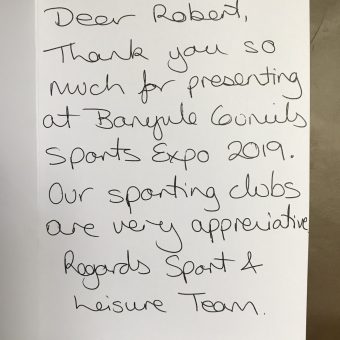 Dear Robert,
Thank you so
much for presenting
at Banyule Councils
Sports Expo 2019.
Our sporting clubs
are very appreciative
Regards Sport &
Leisure Team.